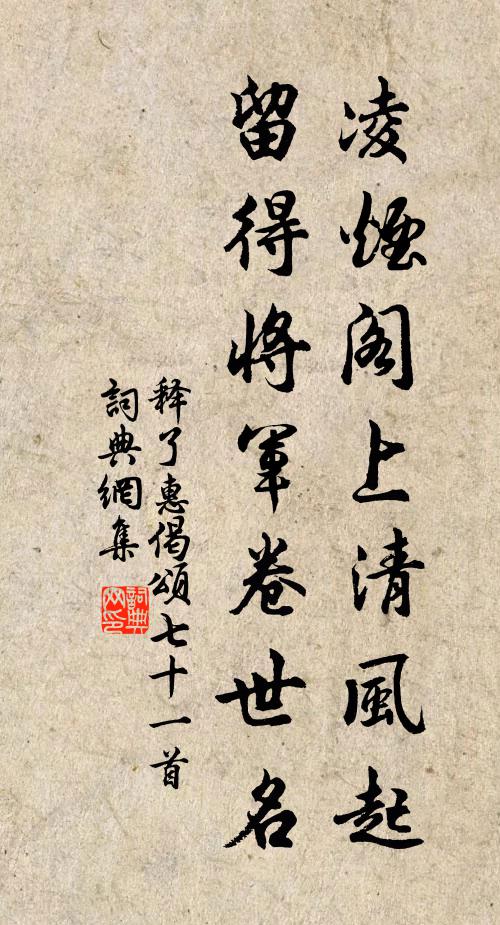 凌煙阁上清風起
留得将軍卷世名
释了惠偈頌七十一首
詞典網集
詞典网印